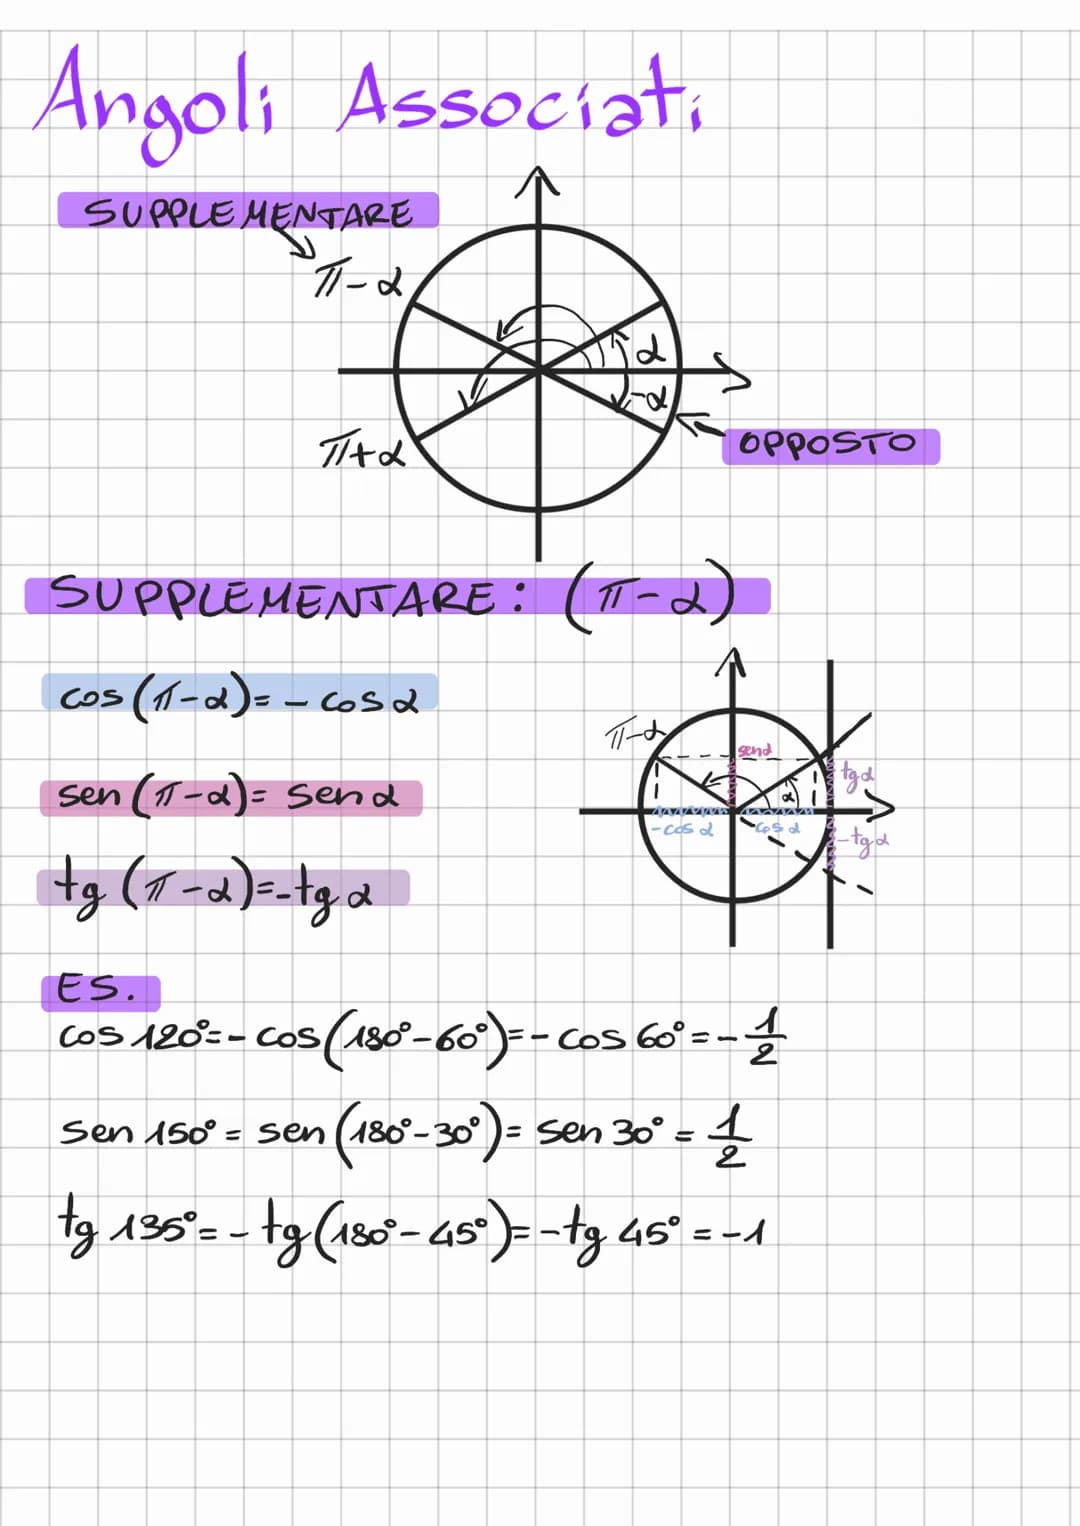 Angoli Associati
SUPPLEMENTARE
π-α
α
-α
OPPOSTO
π+α
SUPPLEMENTARE: (π-α)
cos(π-α)=-cosα
π-α
senα
tgα
α
-cosα
cosα
-tgα
sen(π-α)= senα
tg(π-α)=-tgα
ES.
cos120°=-cos(180°-60°)=-cos60°=-1/2
sen150°=sen(180°-30°)=sen30°=1/2
tg135°=-tg(180°-45°)=-tg45°=-1